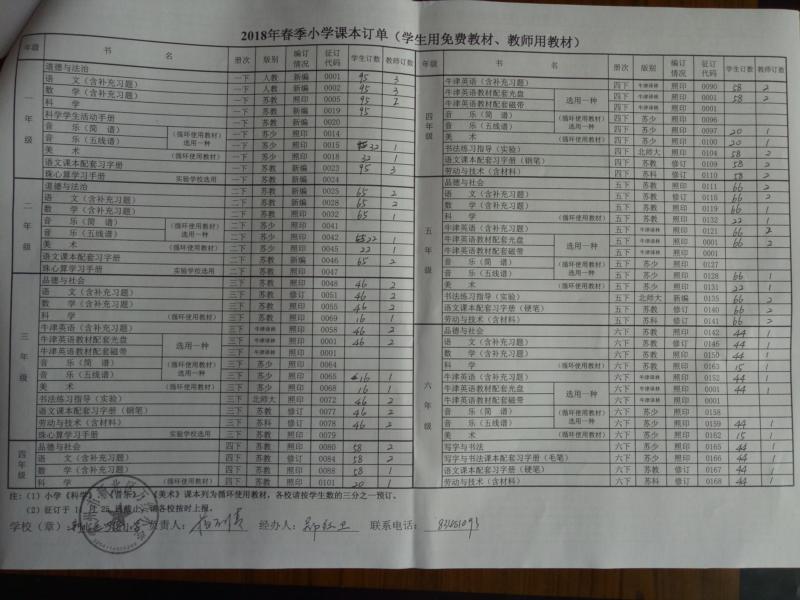 2018年春季小学课本订单（学生用免费教材、教师用教材）
年级 书 名 册次 版别 编订情况 征订代码 学生订数 教师订数
一年级
道德与法治 一下 人教 新编 0001 95 3
语 文（含补充习题） 一下 人教 新编 0002 95 3
数 学（含补充习题） 一下 苏教 照印 0005 95 2
科 学 一下 苏教 新编 0019 95
科学学生活动手册 一下 苏教 新编 0020
音 乐（简 谱） （循环使用教材）选用一种 一下 苏少 照印 0014
音 乐（五线谱） 一下 苏少 照印 0015 32 1
美 术 一下 苏少 照印 0018 32 1
语文课本配套习字册 一下 苏教 新编 0023 95 3
珠心算学习手册 实验学校选用 一下 苏教 新编 0024
二年级
道德与法治 二下 苏教 新编 0025 65 2
语 文（含补充习题） 二下 苏教 新编 0028 65 2
数 学（含补充习题） 二下 苏教 照印 0032 65 1
音 乐（简 谱） （循环使用教材）选用一种 二下 苏少 照印 0041
音 乐（五线谱） 二下 苏少 照印 0042 22 1
美 术 二下 苏少 照印 0045 22 1
语文课本配套习字册 二下 苏教 新编 0046 65 2
珠心算学习手册 实验学校选用 二下 苏教 照印 0047
三年级
品德与社会 三下 苏教 照印 0048 46 2
语 文（含补充习题） 三下 苏教 修订 0051 46 2
数 学（含补充习题） 三下 苏教 照印 0055 46 2
科 学 （循环使用教材） 三下 苏教 照印 0069 16 1
牛津英语（含补充习题） 三下 牛津译林 照印 0058 46 2
牛津英语教材配套光盘 选用一种 三下 牛津译林 照印 0001 46 2
牛津英语教材配套磁带 三下 牛津译林 照印 0001
音 乐（简 谱） （循环使用教材）选用一种 三下 苏少 照印 0064
音 乐（五线谱） 三下 苏少 照印 0065 16 1
美 术 三下 苏少 照印 0068 16 1
书法练习指导（实验） 三下 北师大 照印 0072 46 2
语文课本配套习字册（钢笔） 三下 苏教 修订 0077 46 2
劳动与技术（含材料） 三下 苏科 修订 0078 46 2
珠心算学习手册 实验学校选用 三下 苏教 照印 0079
四年级
品德与社会 四下 苏教 照印 0080 58 2
语 文（含补充习题） 四下 苏教 修订 0084 58 2
数 学（含补充习题） 四下 苏教 照印 0088 58 1
科 学 （循环使用教材） 四下 苏教 照印 0101 20 1
年级 书 名 册次 版别 编订情况 征订代码 学生订数 教师订数
四年级
牛津英语（含补充习题） 四下 牛津译林 照印 0090 58 2
牛津英语教材配套光盘 选用一种 四下 牛津译林 照印 0001 58 2
牛津英语教材配套磁带 四下 牛津译林 照印 0001
音 乐（简 谱） （循环使用教材）选用一种 四下 苏少 照印 0096
音 乐（五线谱） 四下 苏少 照印 0097 20 1
美 术 四下 苏少 照印 0100 20 1
书法练习指导（实验） 四下 北师大 照印 0104 58 2
语文课本配套习字册（钢笔） 四下 苏教 修订 0109 58 2
劳动与技术（含材料） 四下 苏科 修订 0110 58 2
五年级
品德与社会 五下 苏教 照印 0111 66 2
语 文（含补充习题） 五下 苏教 修订 66 2
数 学（含补充习题） 五下 苏教 照印 0119 66 1
科 学 （循环使用教材） 五下 苏教 照印 0132 22 1
牛津英语（含补充习题） 五下 牛津译林 照印 0121 66 2
牛津英语教材配套光盘 选用一种 五下 牛津译林 照印 0001 66 2
牛津英语教材配套磁带 五下 牛津译林 照印 0001
音 乐（简 谱） （循环使用教材）选用一种 五下 苏少 照印 0127
音 乐（五线谱） 五下 苏少 照印 0128 66 1
美 术 五下 苏少 照印 0131 22 1
书法练习指导（实验） 五下 北师大 新编 0135 66 2
语文课本配套习字册（硬笔） 五下 苏教 修订 0140 66 2
劳动与技术（含材料） 五下 苏科 修订 0141 66 2
六年级
品德与社会 六下 苏教 照印 0142 44 1
语 文（含补充习题） 六下 苏教 修订 0146 44 1
数 学（含补充习题） 六下 苏教 照印 0150 44 1
科 学 （循环使用教材） 六下 苏教 照印 0163 15 1
牛津英语（含补充习题） 六下 牛津译林 照印 0152 44 1
牛津英语教材配套光盘 选用一种 六下 牛津译林 照印 0001 44 1
牛津英语教材配套磁带 六下 牛津译林 照印 0001
音 乐（简 谱） （循环使用教材）选用一种 六下 苏少 照印 0158
音 乐（五线谱） 六下 苏少 照印 0159 44 1
美 术 六下 苏少 照印 0162 15 1
写字与书法 六下 苏少 照印 0165 44 1
写字与书法课本配套习字册（毛笔） 六下 苏少 照印 0166 44 1
语文课本配套习字册（硬笔） 六下 苏教 修订 0167 44 1
劳动与技术（含材料） 六下 苏科 修订 0168 44 1
注：（1）小学《科学》、《音乐》、《美术》课本列为循环使用教材，各校按学生数的三分之一预订。
（2）征订于 月25 请各校按时上报。
学校（章） 负责人： 经办人： 联系电话：